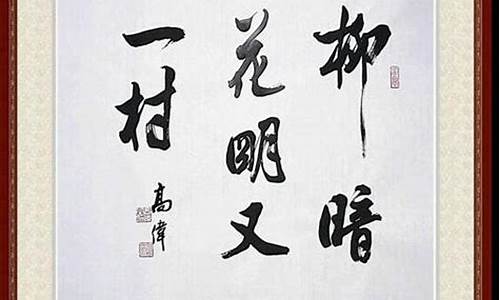 柳暗
花明又
一村
高偉